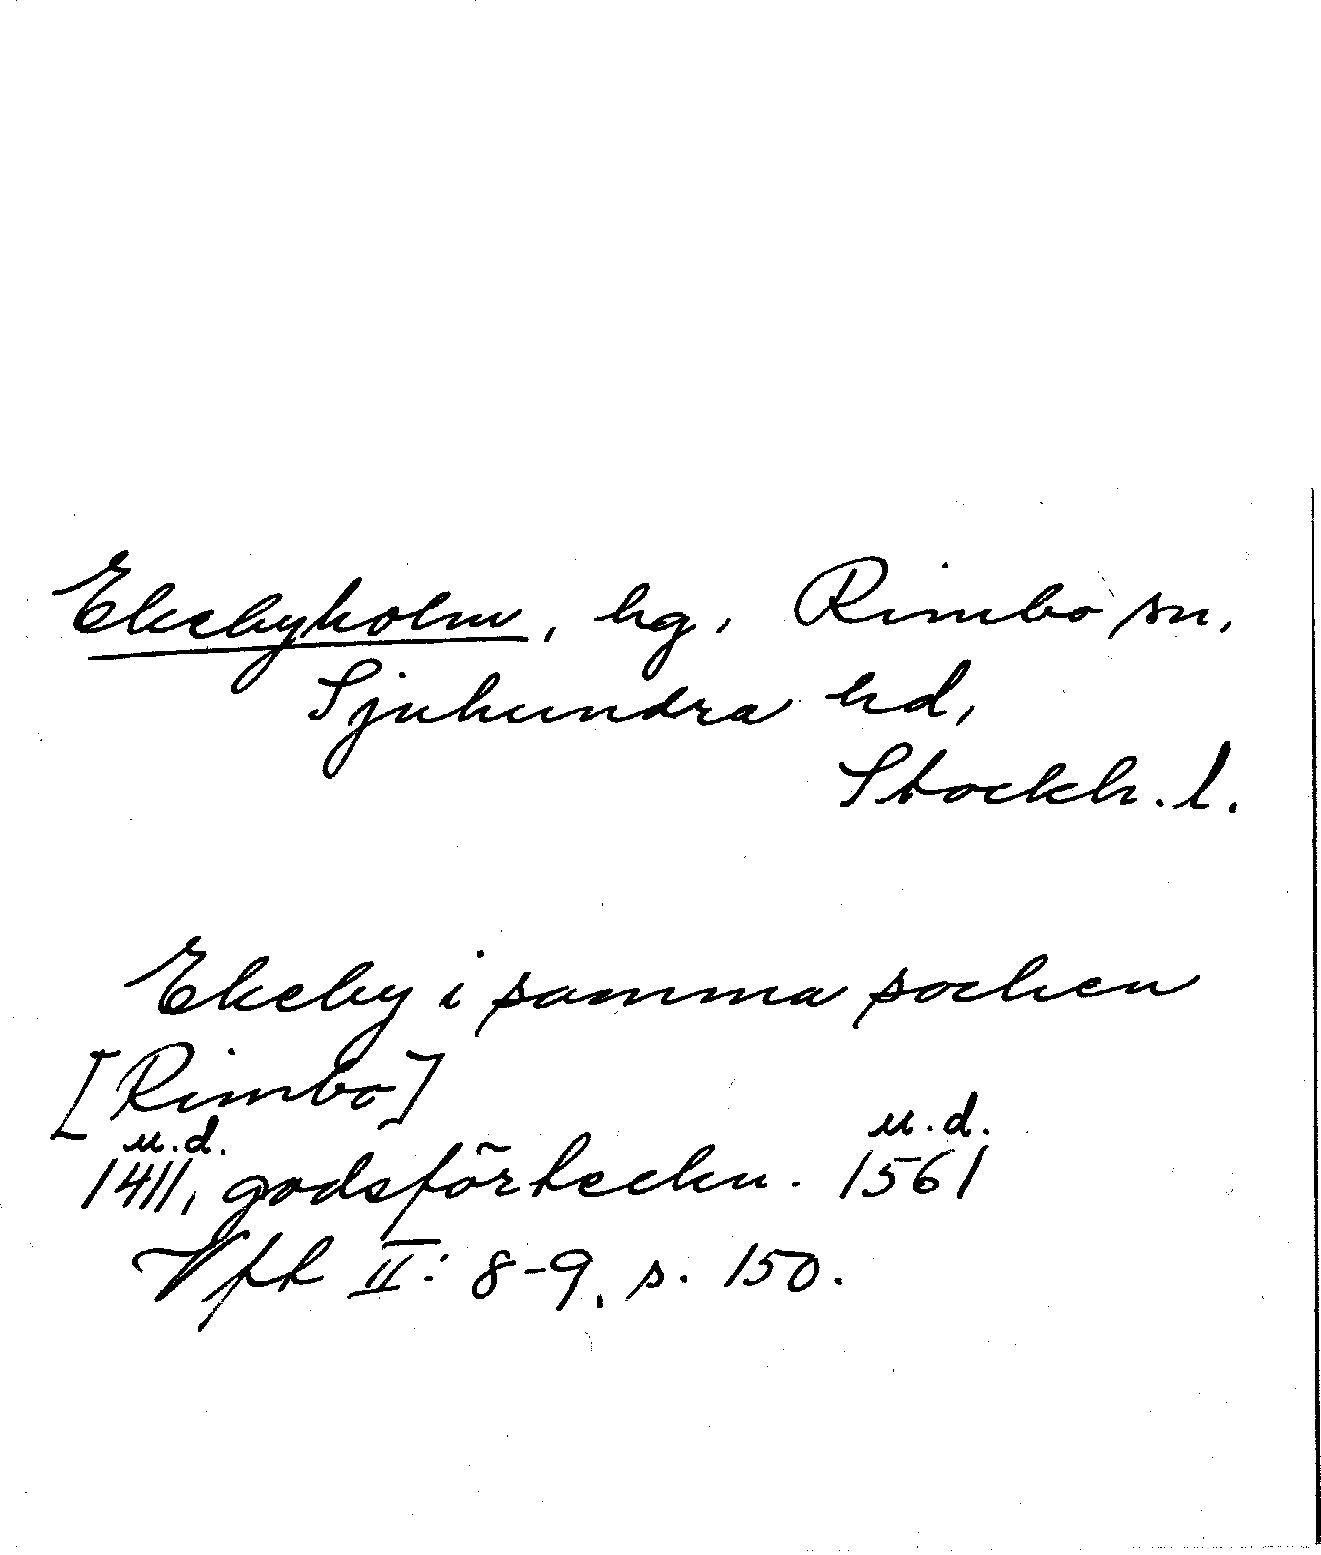 Ekebyholm, hg, Rimbo sn,
Sjuhundra hd,
Stockh. l.
Ekeby i samma socken
[Rimbo]
u.d. u.d.
1411, godsförteckn. 1561
Vft II: 8-9, s. 150.